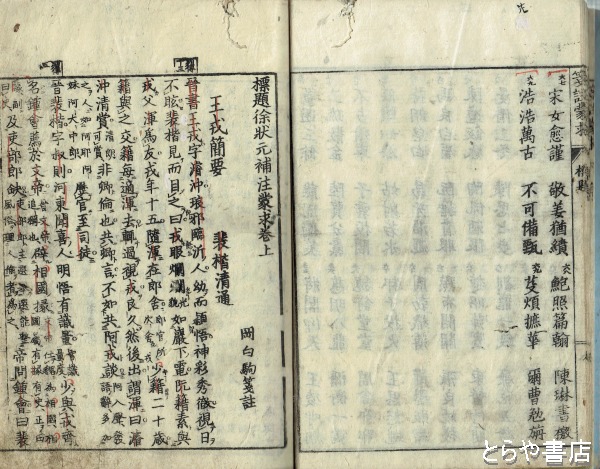 宋女愈謹 敬姜猶績 鮑照篇翰 陳琳書檄
浩浩萬古 不可備甄 芟煩摭華 爾曹勉旃
標題徐狀元補注蒙求卷上
岡白駒箋註
王戎簡要 裴楷清通
晉書王戎字濬沖琅邪臨沂人幼而穎悟神彩秀徹視日
不眩裴楷見而目之曰戎眼爛爛如巖下電阮籍素與
戎父渾爲友戎年十五隨渾在郎舍少籍二十歲
籍與之交籍每適渾去輒過視戎良久然後出謂渾曰濬
沖清賞非卿倫也共卿言不如共阿戎談
歷官至司徒
晉裴楷字叔則河東聞喜人明悟有識量少與戎齊
名鍾會薦於文帝辟相國掾
及吏部郎缺帝問鍾會曰裴
とらや書店